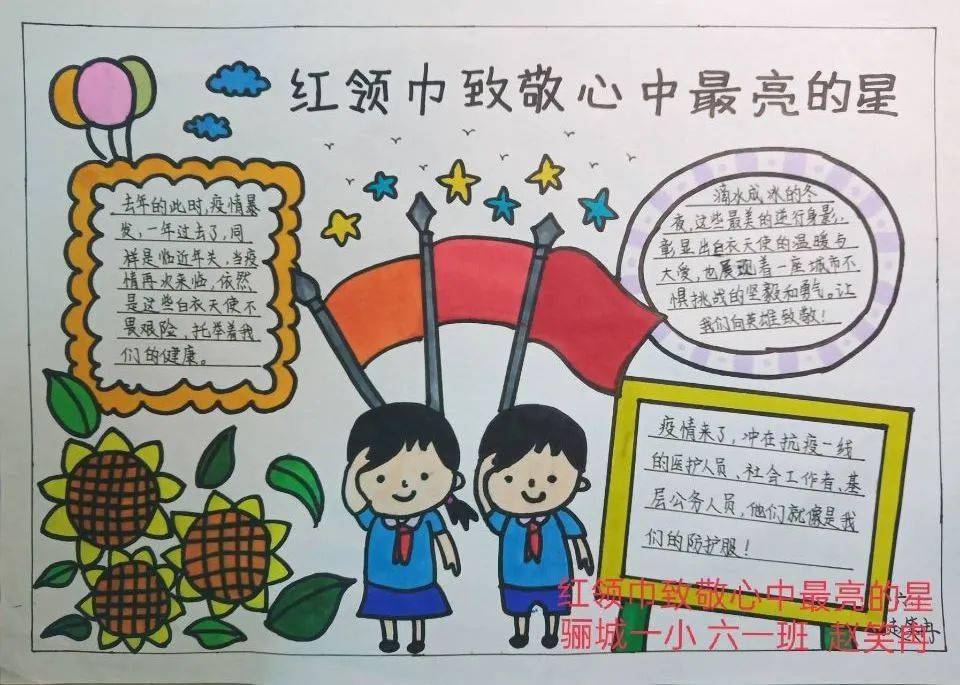 红领巾致敬心中最亮的星
去年的此时,疫情暴
发,一年过去了,同
样是临近年关,当疫
情再次来临,依然
是这些白衣天使不
畏艰险,托举着我
们的健康。
滴水成冰的冬
夜,这些最美的逆行身影,
彰显出白衣天使的温暖与
大爱,也展现着一座城市不
惧挑战的坚毅和勇气。让
我们向英雄致敬!
疫情来了,冲在抗疫一线
的医护人员、社会工作者、基
层公务人员,他们就像是我
们的防护服!
红领巾致敬心中最亮的星
骊城一小 六一班 赵笑冉